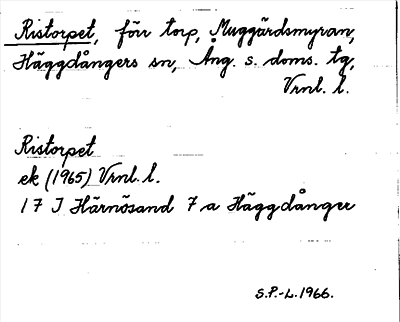 Ristorpet, förr torp, Muggärdsmyran,
Häggdångers sn, Ång. s. doms. tg,
Vrnl. l.
Ristorpet
ek (1965) Vrnl. l.
17 J Härnösand 7 a Häggdånger
S.P.-L. 1966.